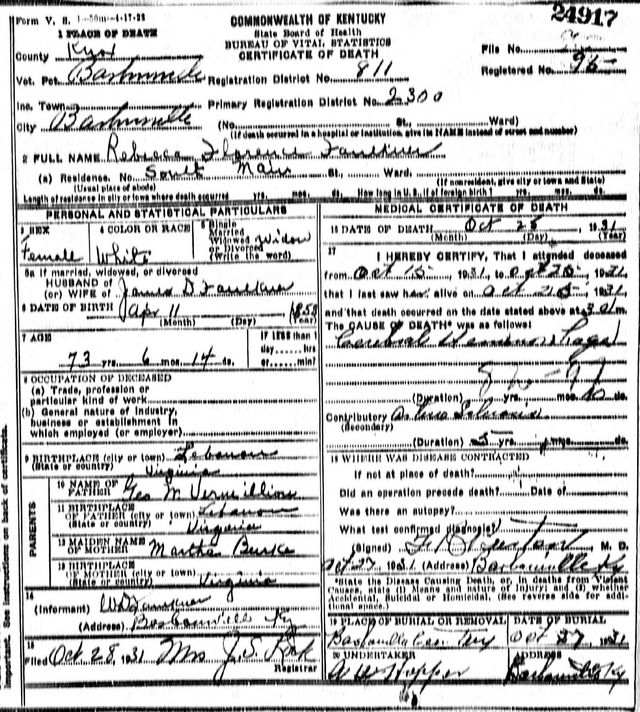 Form V. S. 1-50m-4-17-28
COMMONWEALTH OF KENTUCKY
24917
State Board of Health
BUREAU OF VITAL STATISTICS
CERTIFICATE OF DEATH
1 PLACE OF DEATH
County Knox
File No.
Vot. Pct. Barbourville Registration District No. 811
Registered No. 96
Inc. Town Primary Registration District No. 2300
City Barbourville (No. St., Ward)
(If death occurred in a hospital or institution, give its NAME instead of street and number)
2 FULL NAME Rebecca Florence Faulkner
(a) Residence. No. South Main St., Ward.
(Usual place of abode) (If nonresident, give city or town and State)
Length of residence in city or town where death occurred yrs. mos. ds. How long in U. S., if of foreign birth? yrs. mos. ds.
PERSONAL AND STATISTICAL PARTICULARS
3 SEX
Female
4 COLOR OR RACE
White
5 Single
Married
Widowed Widow
or Divorced
(Write the word)
5a If married, widowed, or divorced
HUSBAND OF
(or) WIFE OF James D Faulkner
6 DATE OF BIRTH Apr 11 1858
(Month) (Day) (Year)
7 AGE
73 yrs. 6 mos. 14 ds.
IF LESS than 1
day......hrs
or......min?
8 OCCUPATION OF DECEASED
(a) Trade, profession or
particular kind of work
(b) General nature of Industry,
business or establishment in
which employed (or employer)
9 BIRTHPLACE (city or town) Lebanon
(State or country) Virginia
PARENTS
10 NAME OF
FATHER Geo M Vermillion
11 BIRTHPLACE
OF FATHER (city or town) Lebanon
(State or country) Virginia
12 MAIDEN NAME
OF MOTHER Martha Burke
13 BIRTHPLACE
OF MOTHER (city or town)
(State or country) Virginia
14
(Informant) W D Faulkner
(Address) Barbourville Ky
15
Filed Oct 28, 1931 Mrs J. S.
Registrar
MEDICAL CERTIFICATE OF DEATH
16 DATE OF DEATH Oct 25, 1931
(Month) (Day) (Year)
17
I HEREBY CERTIFY, That I attended deceased
from Oct 15, 1931 to Oct 25, 1931
that I last saw her alive on Oct 25, 1931
and that death occurred on the date stated above at 3 a.m.
The CAUSE OF DEATH* was as follows:
Cerebral Hemorrhage
(Duration) yrs. mos. 10 ds.
Contributory
(Secondary)
(Duration) 5 yrs. mos. ds.
18 WHERE WAS DISEASE CONTRACTED
If not at place of death?
Did an operation precede death? Date of
Was there an autopsy?
What test confirmed diagnosis?
(Signed) M. D.
Oct 27 1931 (Address) Barbourville Ky
*State the Disease Causing Death, or, in deaths from Violent
Causes, state (1) Means and nature of Injury; and (2) whether
Accidental, Suicidal or Homicidal. (See reverse side for addi-
tional space.)
19 PLACE OF BURIAL OR REMOVAL
Barbourville Cemetery
DATE OF BURIAL
Oct 27 1931
20 UNDERTAKER
A W Hopper
ADDRESS
Barbourville Ky
Important. See instructions on back of certificate.